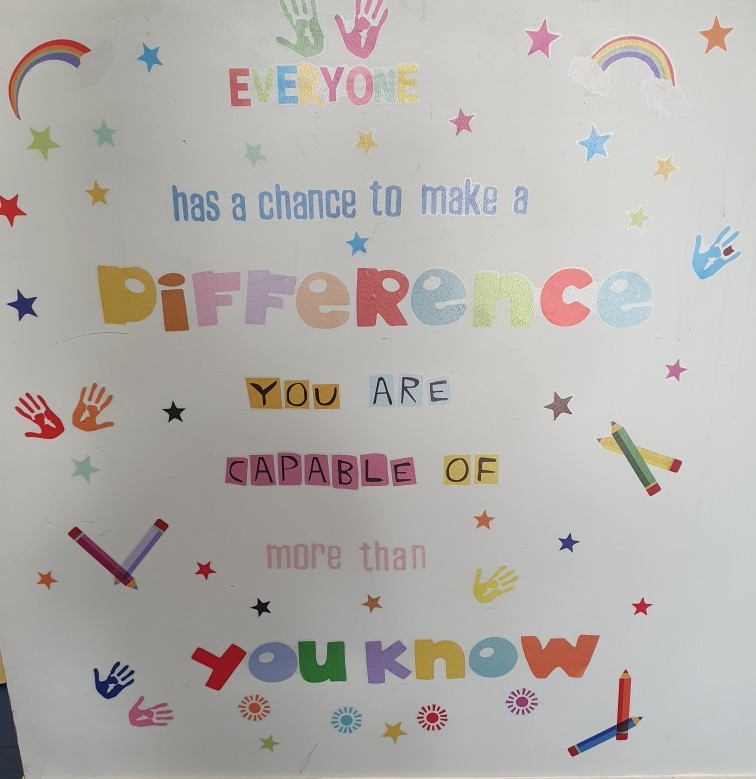 EVERYONE
has a chance to make a
DiFFeRence
YOU ARE
CAPABLE OF
more than
you know